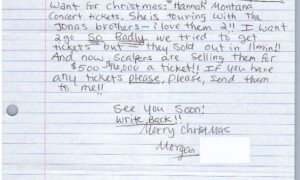 Want for christmas: Hannah Montana
Concert tickets. She is touring with The
Jonas brothers - i love them 2!! I want
2go So Badly we tried to get
tickets but they Sold out in 11min!!
And now Scalpers are selling them for
a ticket!! If you have
any tickets please, please, send
them to me!!
See You Soon!
Write Back!!
Merry Christmas
Morgan